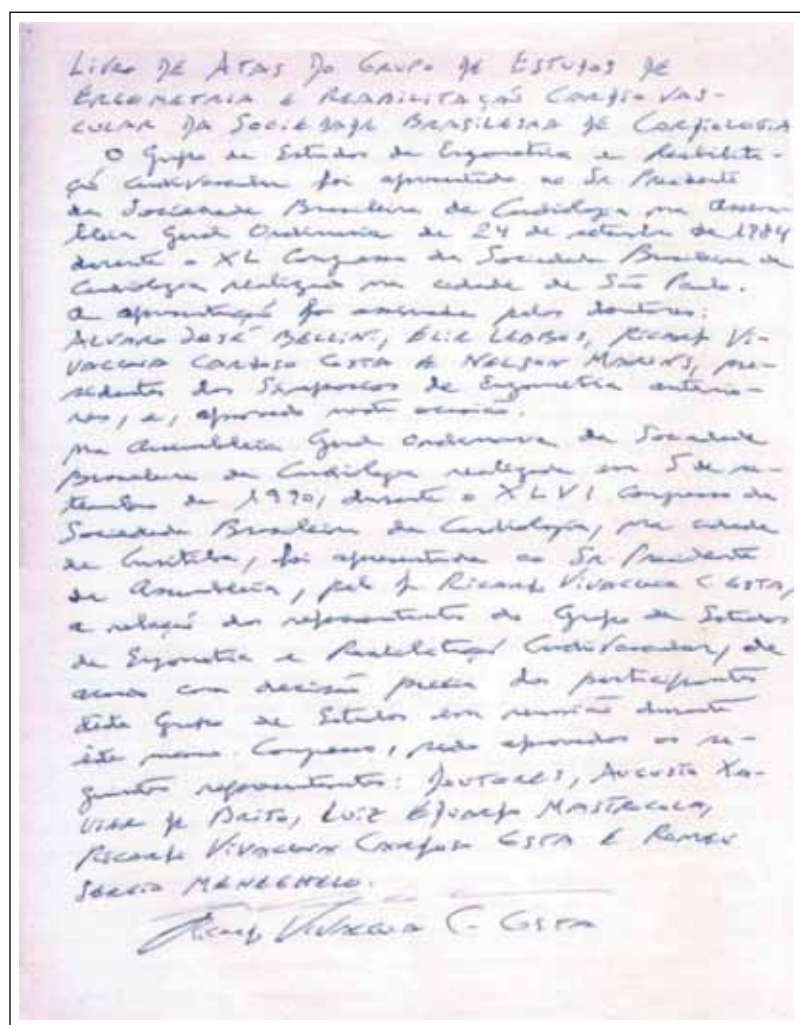 LIVRO DE ATAS DO GRUPO DE ESTUDOS DE
ERGOMETRIA E REABILITAÇÃO CARDIOVAS-
CULAR DA SOCIEDADE BRASILEIRA DE CARDIOLOGIA
O Grupo de Estudos de Ergometria e Reabilita-
ção Cardiovascular foi apresentado ao Sr. Presidente
da Sociedade Brasileira de Cardiologia na Assem-
bleia Geral Ordinaria de 24 de setembro de 1984
durante o XL Congresso da Sociedade Brasileira de
Cardiologia realizado na cidade de São Paulo.
A apresentação foi assinada pelos doutores:
ALVARO JOSÉ BELLINI, ELIE LEABOS, RICARDO VI-
VACQUA CARDOSO COSTA E NELSON MARINS, pre-
sidentes dos Simposios de Ergometria anterio-
res, e, aprovado nesta ocasião.
Na Assembleia Geral Ordinaria da Sociedade
Brasileira de Cardiologia realizada em 5 de se-
tembro de 1990, durante o XLVI Congresso da
Sociedade Brasileira de Cardiologia, na cidade
de Curitiba, foi apresentada ao Sr. Presidente
da Assembleia, pelo Dr. RICARDO VIVACQUA C. COSTA,
a relação dos representantes do Grupo de Estudos
de Ergometria e Reabilitação Cardiovascular, de
acordo com decisão previa dos participantes
deste Grupo de Estudos em reunião durante
este mesmo Congresso, sendo aprovados os se-
guintes representantes: DOUTORES, AUGUSTO XA-
VIER DE BRITO, LUIZ EDUARDO MASTROCOLA,
RICARDO VIVACQUA CARDOSO COSTA E ROMEU
SERGIO MENEGHELO.
Ricardo Vivacqua C. Costa